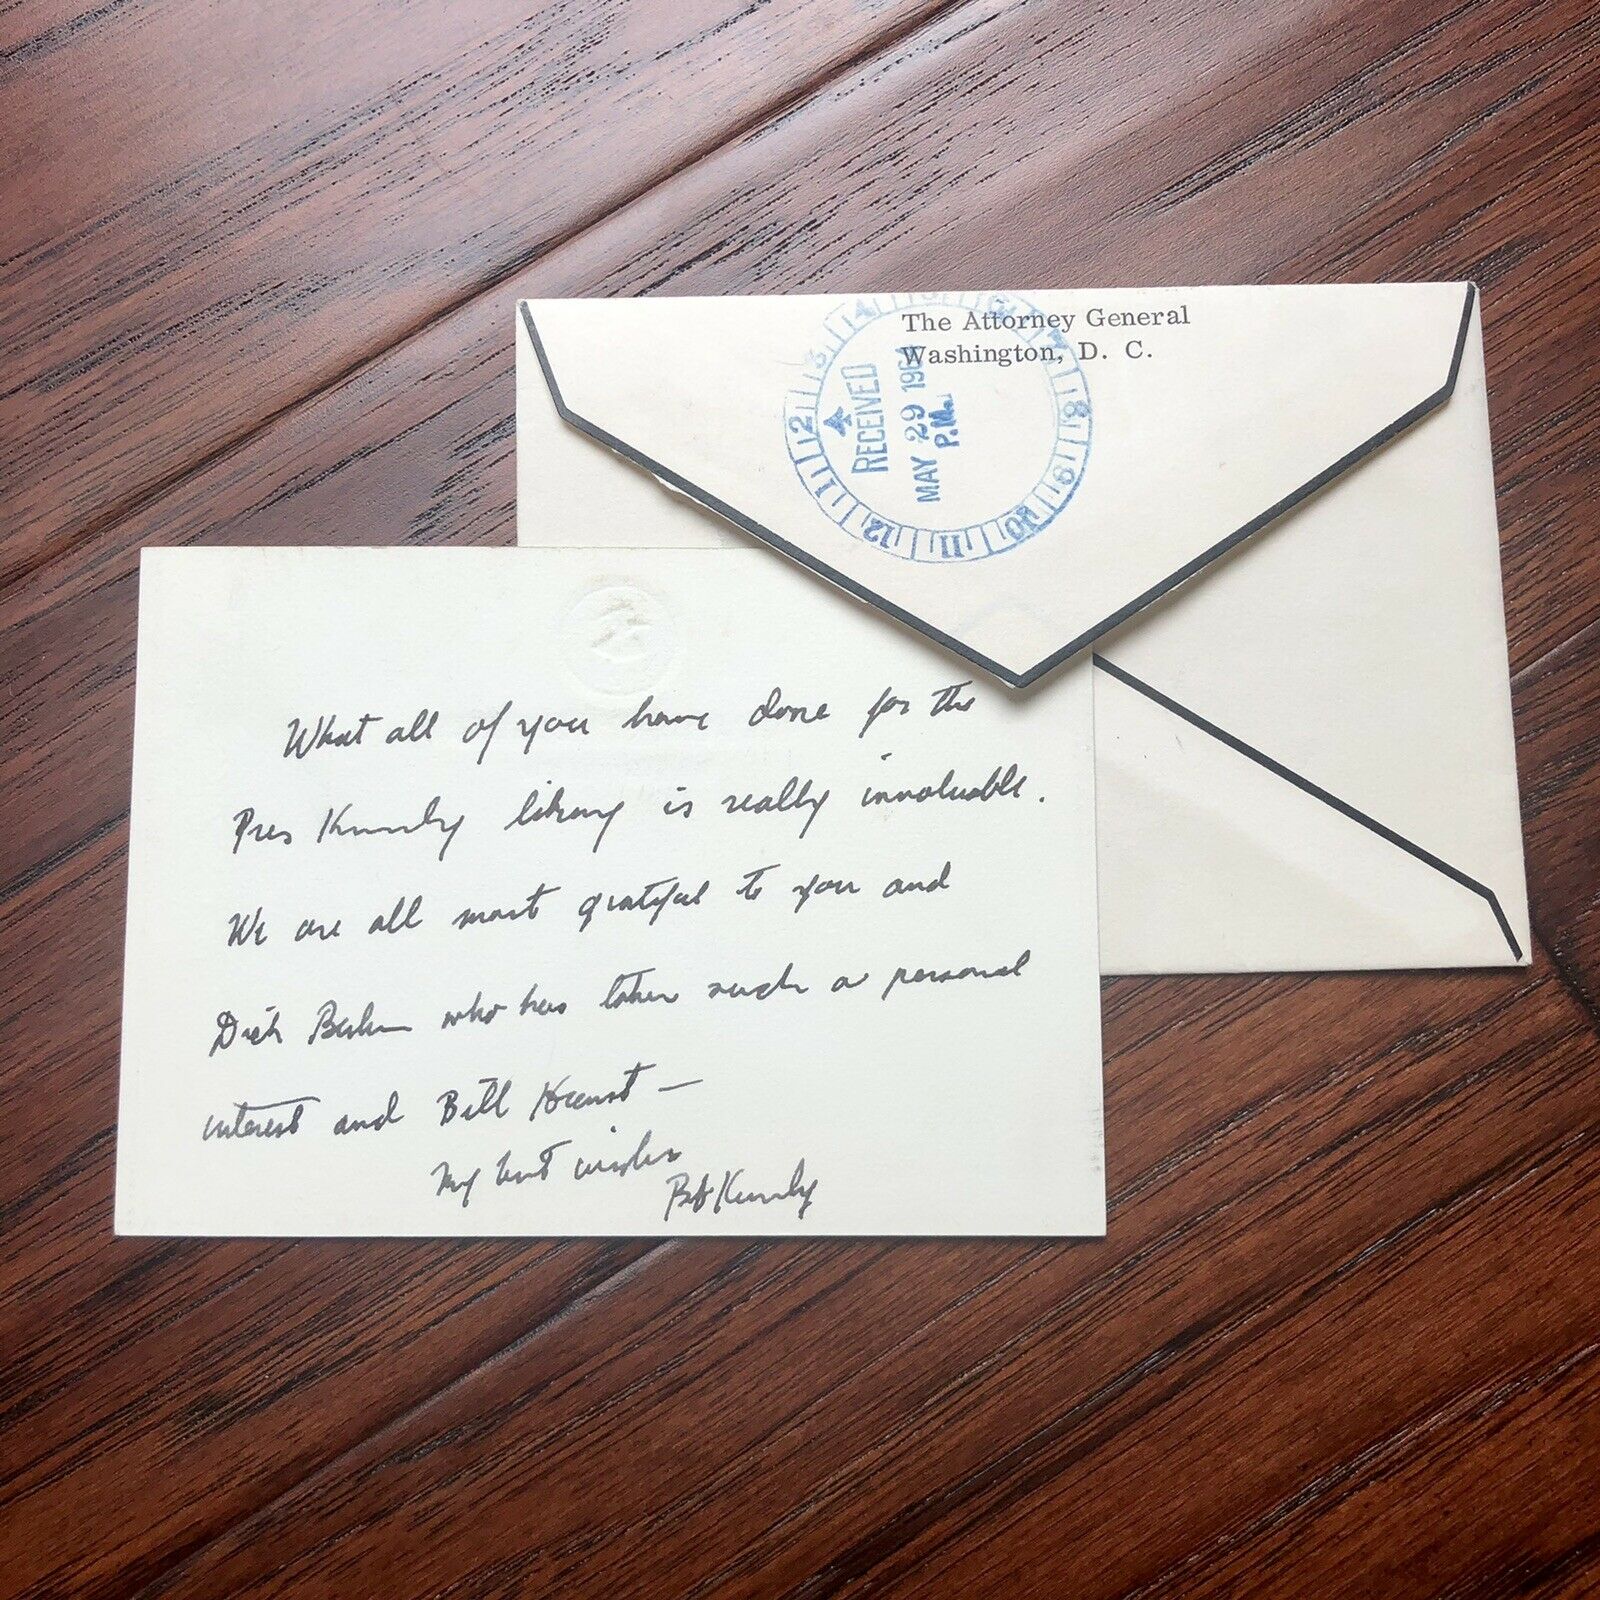 The Attorney General
Washington, D. C.
RECEIVED
MAY 29 1964
P.M.
2 3 4 5 6 7 8 9 10 11 12 1
What all of you have done for the
Pres Kennedy library is really invaluable.
We are all most grateful to you and
Dick who has taken such a personal
interest and Bill —
My best wishes
Bob Kennedy